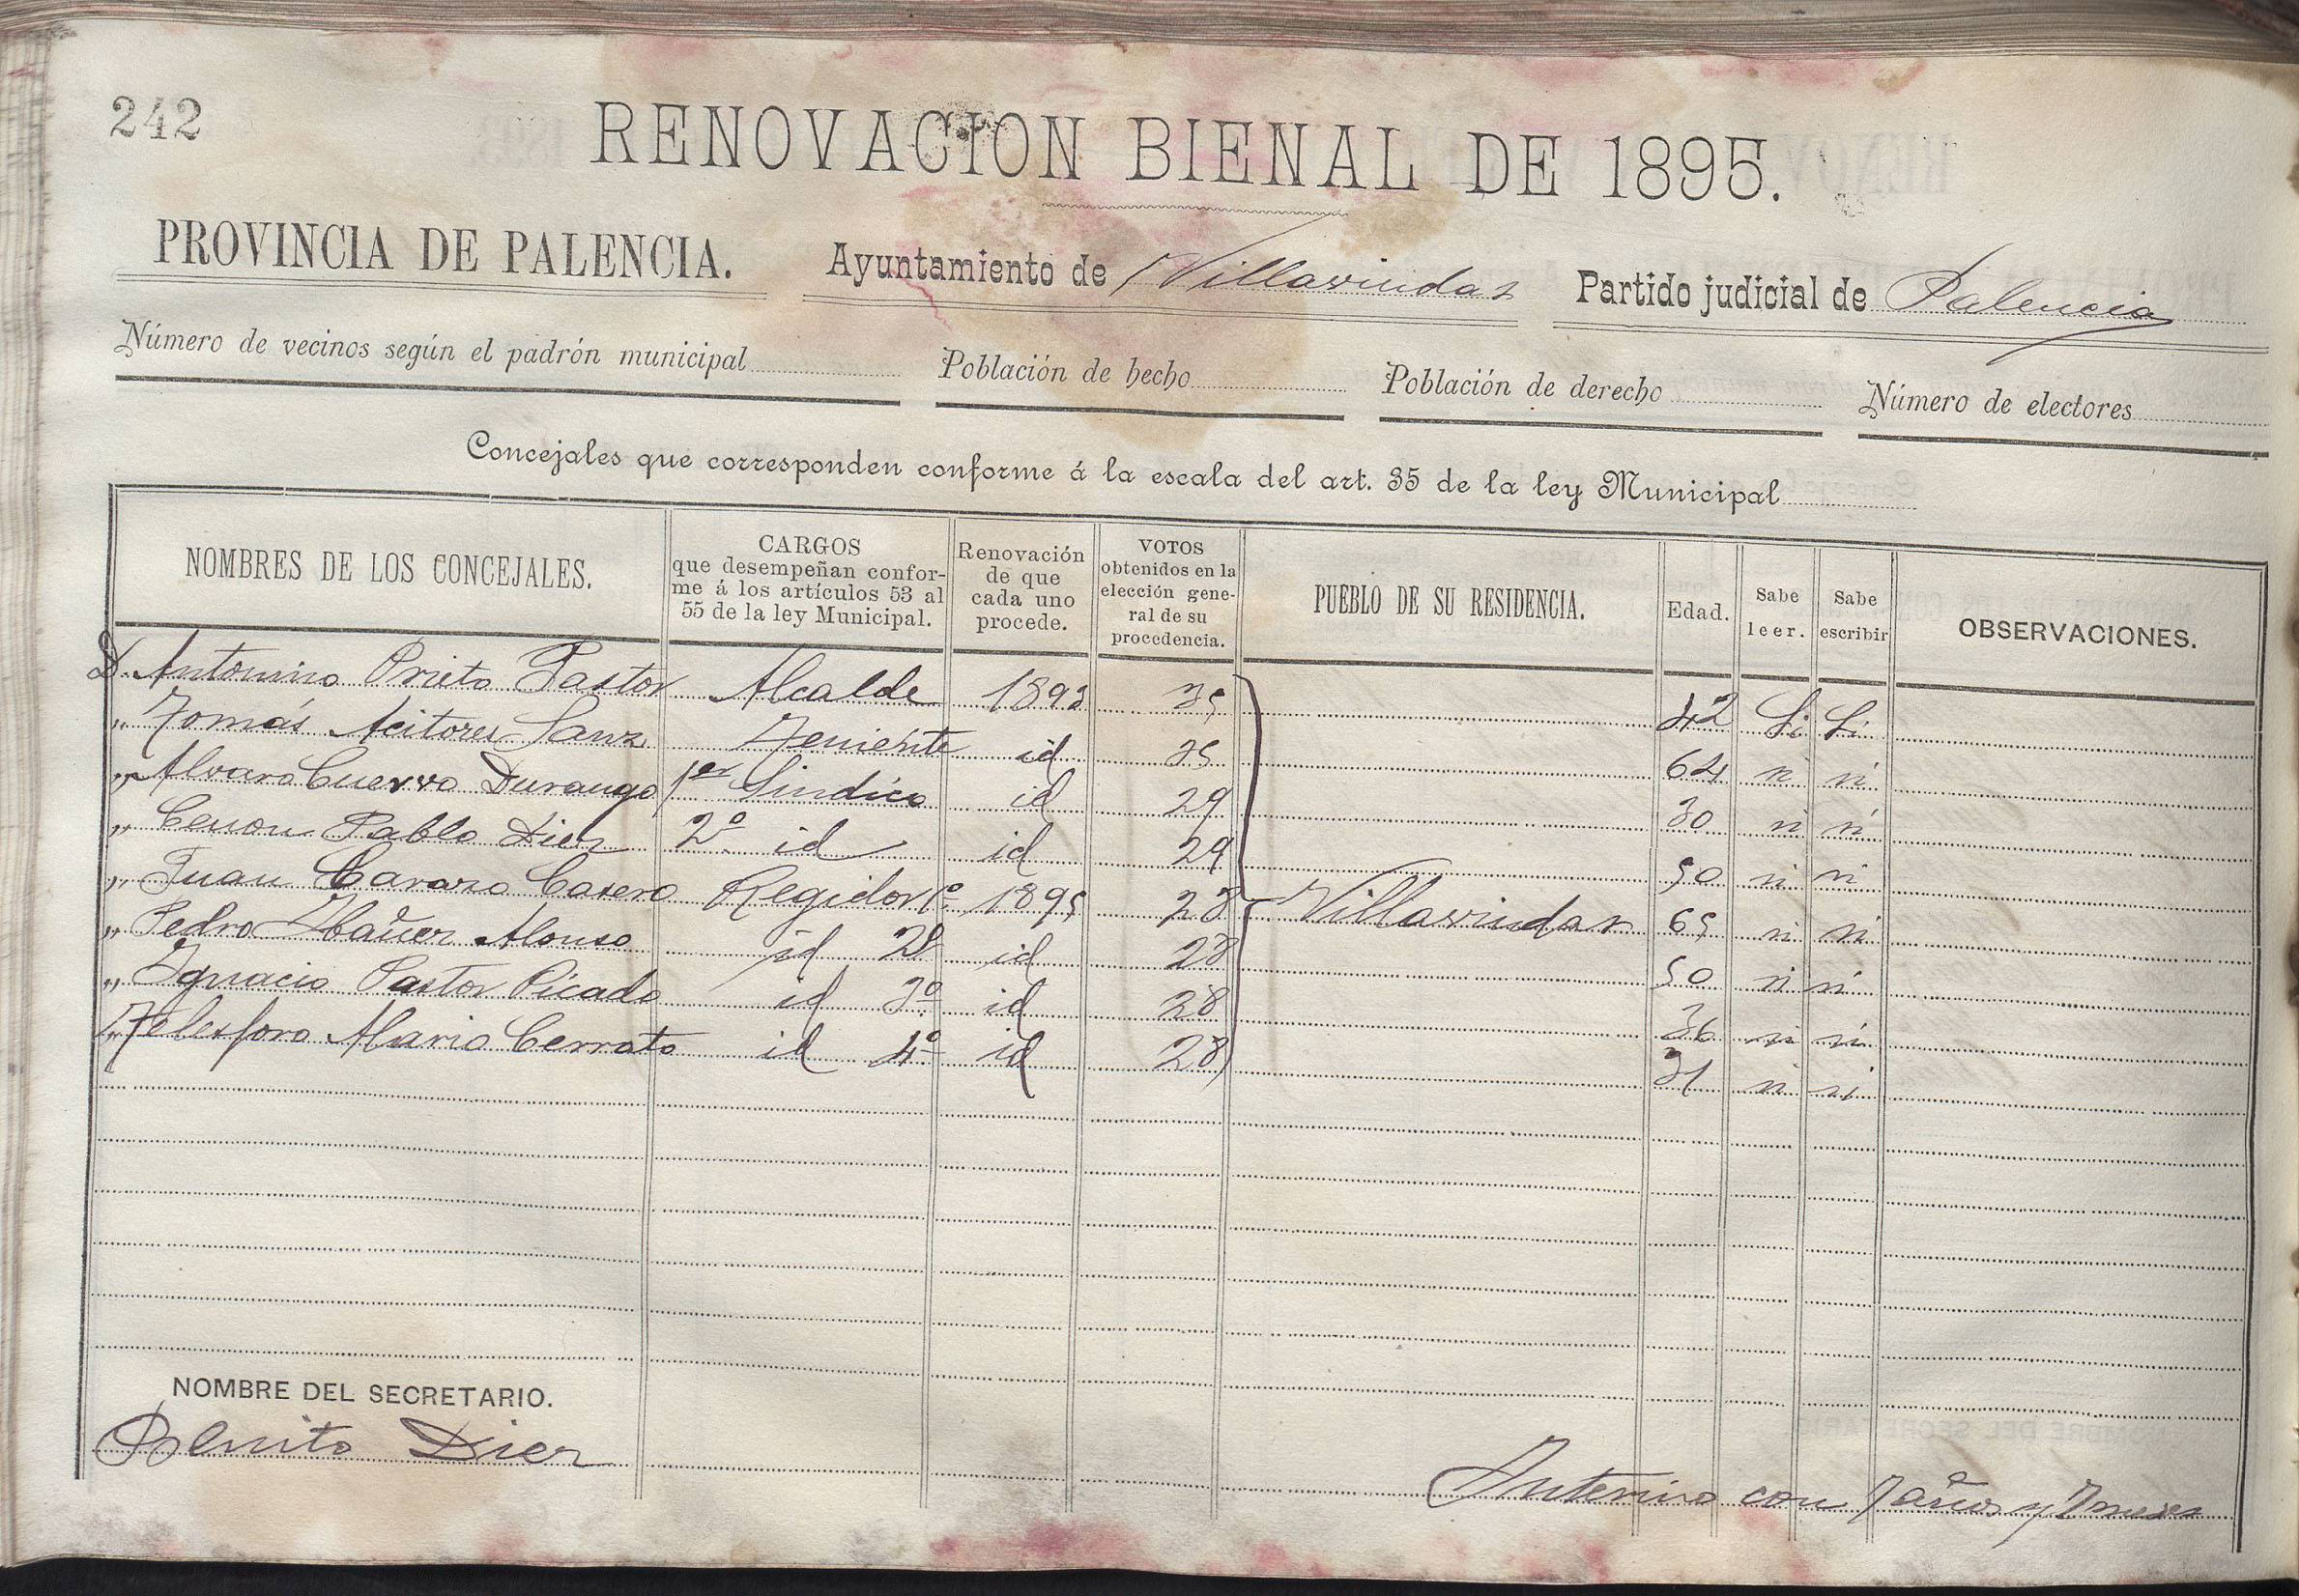 242
RENOVACION BIENAL DE 1895.
PROVINCIA DE PALENCIA. Ayuntamiento de Villaviudas Partido judicial de Palencia
Número de vecinos según el padrón municipal Población de hecho Población de derecho Número de electores
Concejales que corresponden conforme á la escala del art. 35 de la ley Municipal
NOMBRES DE LOS CONCEJALES. CARGOS que desempeñan conforme á los artículos 53 al 55 de la ley Municipal. Renovación de que cada uno procede. VOTOS obtenidos en la elección general de su procedencia. PUEBLO DE SU RESIDENCIA. Edad. Sabe leer. Sabe escribir OBSERVACIONES.
D. Antonino Prieto Pastor Alcalde 1893 35 42 Si Si
„ Tomás Acitores Sanz Teniente id 35 64 si si
„ Alvaro Cuervo Durango 1er Sindico id 29 30 si si
„ Cenon Pablo Diez 2º id id 29 50 si si
„ Juan Casero Regidor 1º 1895 28 Villaviudas 65 si si
„ Pedro Ibañez Alonso id 2º id 28 50 si si
„ Ignacio Pastor Picado id 3º id 28 36 si si
„ Telesforo Mario Cerrato id 4º id 28 31 si si
NOMBRE DEL SECRETARIO.
Benito Diez
Interino con 7 años y 7 meses